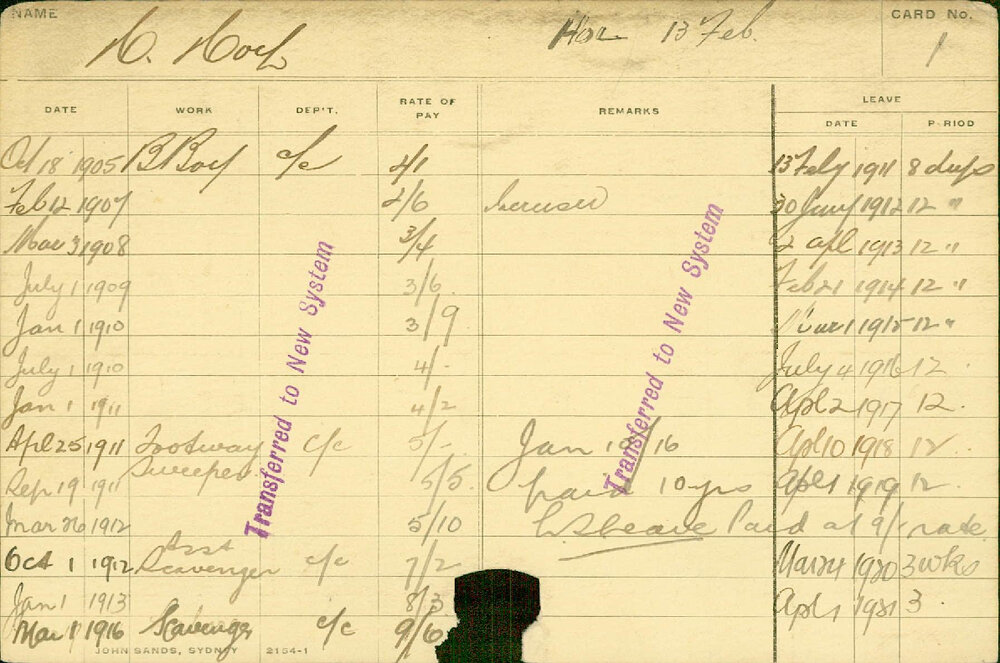 NAME H. Hoy Hoz 13 Feb. CARD No. 1
DATE WORK DEP'T. RATE OF PAY REMARKS LEAVE
DATE PERIOD
Oct 18 1905 B Boy c/c 2/1 13 Feby 1911 8 days
Feb 12 1907 2/6 30 Jany 1912 12 "
Mar 3 1908 3/4 2 apl 1913 12 "
July 1 1909 3/6 Feb 21 1914 12 "
Jan 1 1910 3/9 1 1915 12 "
July 1 1910 4/- July 4 1916 12
Jan 1 1911 4/2 Apl 2 1917 12.
Apl 25 1911 Footway Sweeper c/c 5/- Jan 18/16 Apl 10 1918 12
Sep 19 1911 5/5. paid 10 yrs Apl 1 1919 12.
Mar 26 1912 5/10 L S leave Paid at 9/- rate
Oct 1 1912 Asst Scavenger c/c 7/2 Mar 24 1920 3 wks
Jan 1 1913 8/3 Apl 1 1921 3
Mar 1 1916 Scavenger c/c 9/6
JOHN SANDS, SYDNEY 2154-1
Transferred to New System
Transferred to New System